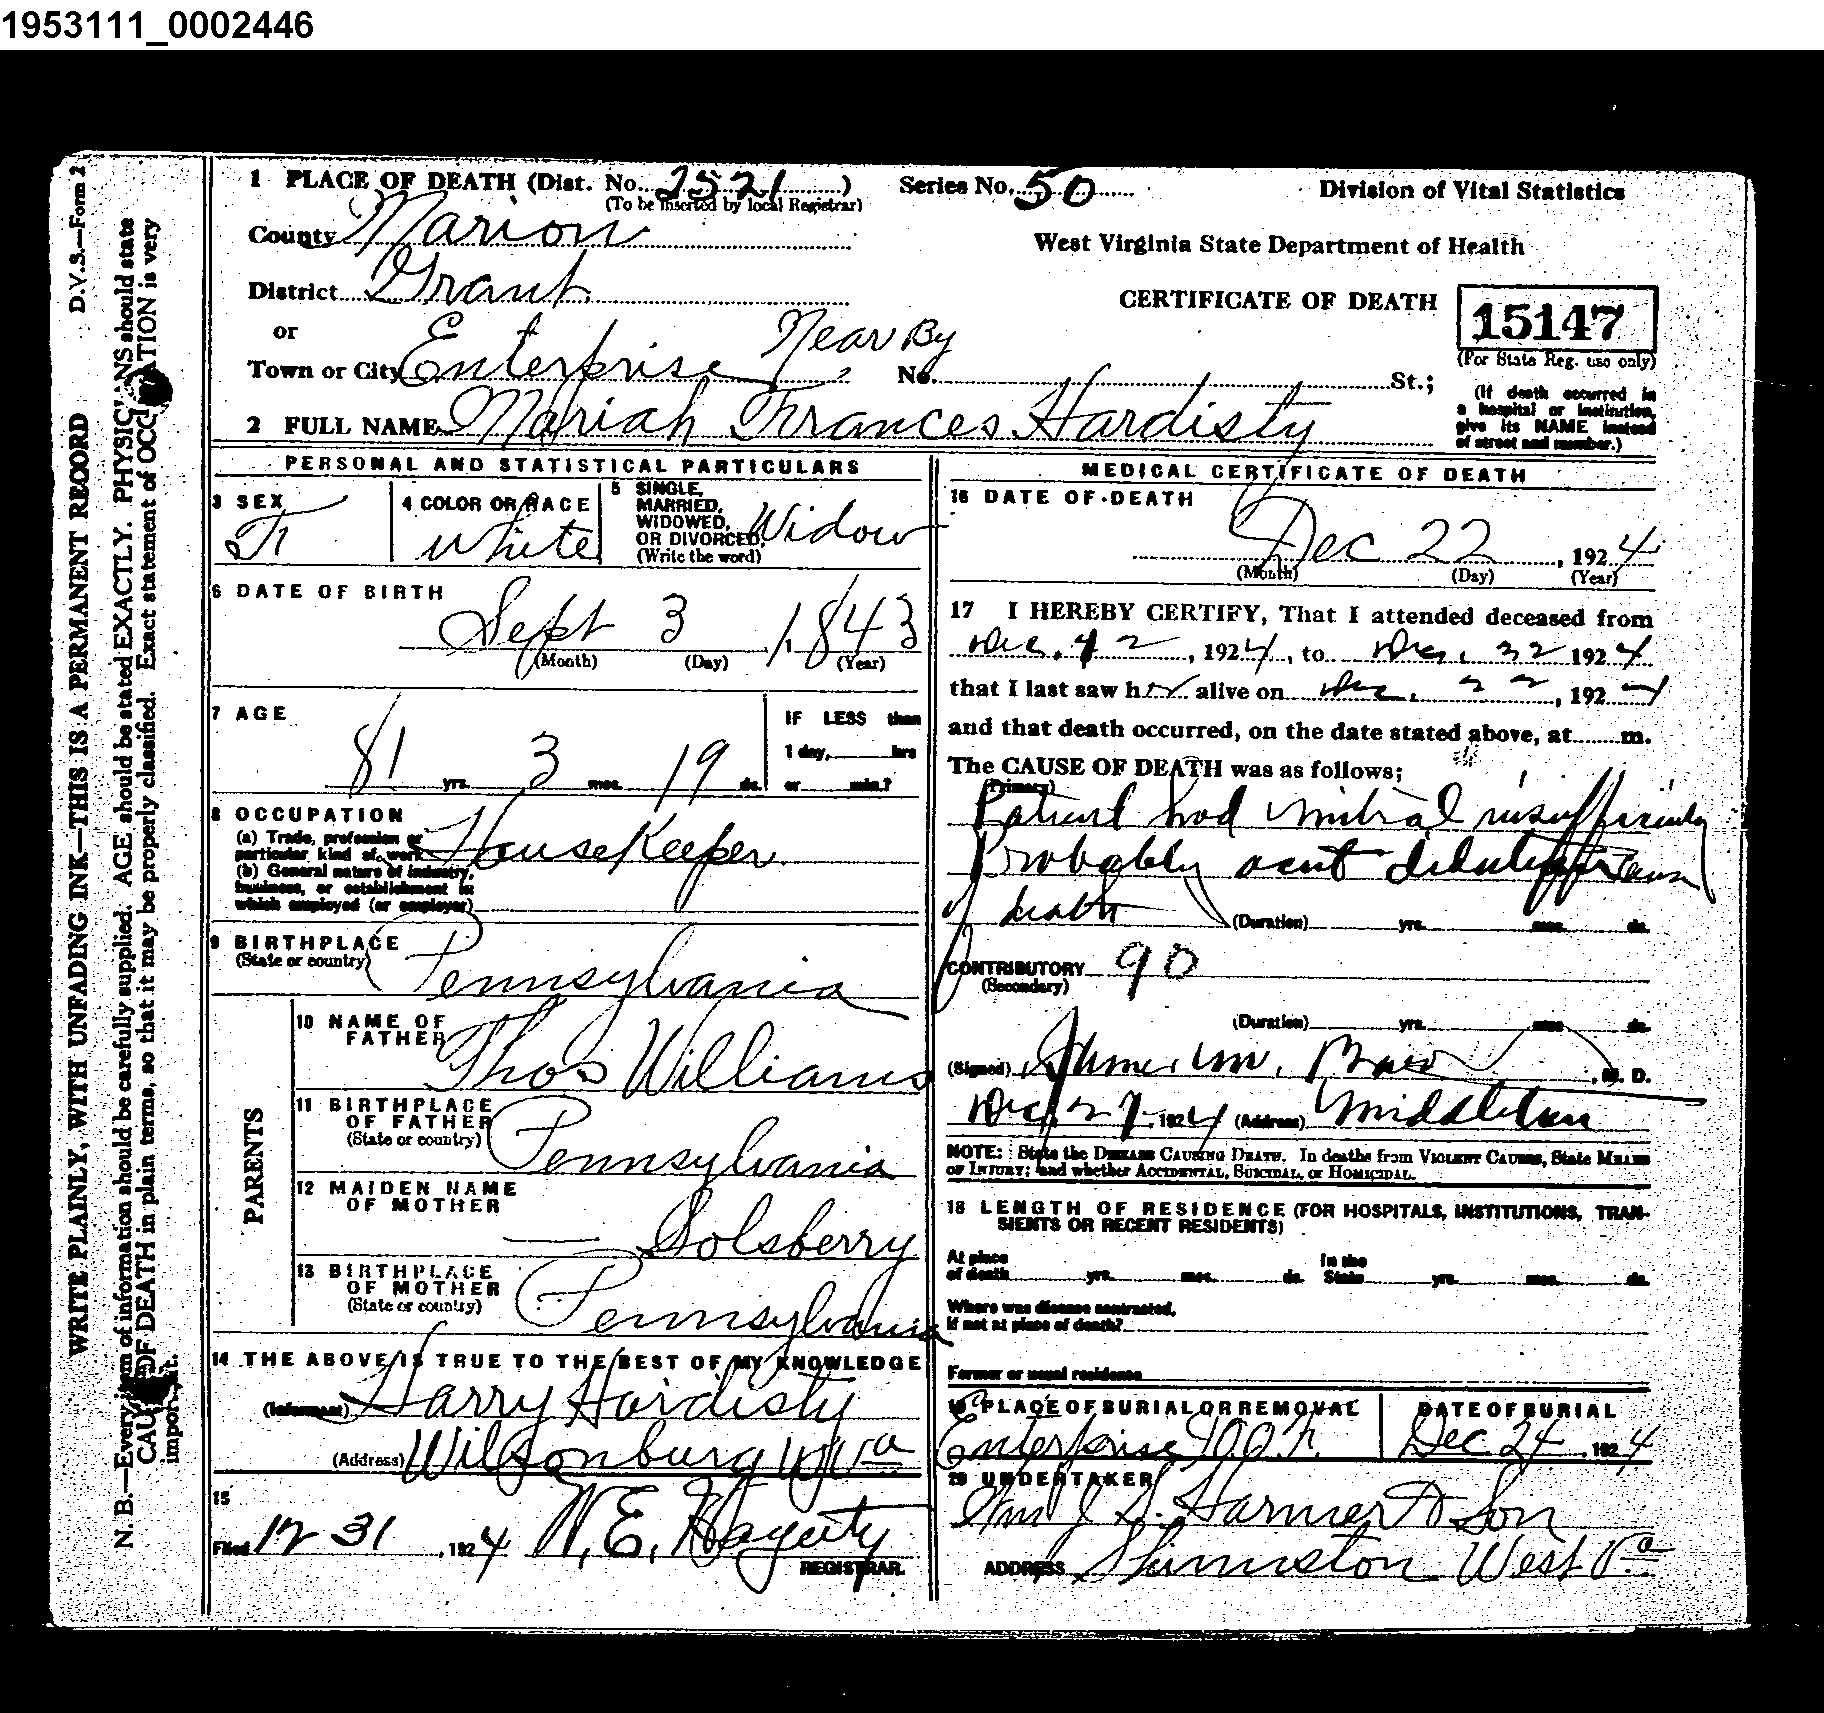 1953111_0002446
D.V.S.—Form 2
WRITE PLAINLY, WITH UNFADING INK—THIS IS A PERMANENT RECORD
N. B.—Every item of information should be carefully supplied. AGE should be stated EXACTLY. PHYSICIANS should state
CAUSE OF DEATH in plain terms, so that it may be properly classified. Exact statement of OCCUPATION is very
important.
1 PLACE OF DEATH (Dist. No. 2521) Series No. 50 Division of Vital Statistics
(To be inserted by local Registrar)
County Marion
West Virginia State Department of Health
District Grant
CERTIFICATE OF DEATH 15147
(For State Reg. use only)
or
Town or City Enterprise, Near By No. St.;
(If death occurred in
a hospital or institution,
give its NAME instead
of street and number.)
2 FULL NAME Mariah Frances Hardisty
PERSONAL AND STATISTICAL PARTICULARS
3 SEX
F
4 COLOR OR RACE
White
5 SINGLE,
MARRIED,
WIDOWED,
OR DIVORCED,
(Write the word)
Widow
6 DATE OF BIRTH
Sept 3, 1843
(Month) (Day) (Year)
7 AGE
81 yrs. 3 mos. 19 ds.
IF LESS than
1 day, hrs
or min.?
8 OCCUPATION
(a) Trade, profession or
particular kind of work
HouseKeeper
(b) General nature of industry,
business, or establishment in
which employed (or employer)
9 BIRTHPLACE
(State or country)
Pennsylvania
PARENTS
10 NAME OF
FATHER
Thos Williams
11 BIRTHPLACE
OF FATHER
(State or country)
Pennsylvania
12 MAIDEN NAME
OF MOTHER
— Solsberry
13 BIRTHPLACE
OF MOTHER
(State or country)
Pennsylvania
14 THE ABOVE IS TRUE TO THE BEST OF MY KNOWLEDGE
(Informant) Harry Hardisty
(Address) Wilsonburg W Va
15
Filed 12 31, 1924 N. E. Hagerty
REGISTRAR.
MEDICAL CERTIFICATE OF DEATH
16 DATE OF DEATH
Dec 22, 1924
(Month) (Day) (Year)
17 I HEREBY CERTIFY, That I attended deceased from
Dec. 12, 1924, to Dec. 22 1924
that I last saw her alive on Dec. 22, 1924
and that death occurred, on the date stated above, at m.
The CAUSE OF DEATH was as follows;
(Primary)
Patient had mitral insufficiency
Probably acut
death
(Duration) yrs. mos. ds.
CONTRIBUTORY 90
(Secondary)
(Duration) yrs. mos. ds.
(Signed) , M. D.
Dec. 27, 1924 (Address) Middleton
NOTE: State the DISEASE CAUSING DEATH. In deaths from VIOLENT CAUSES, State MEANS
OF INJURY; and whether ACCIDENTAL, SUICIDAL, or HOMICIDAL.
18 LENGTH OF RESIDENCE (FOR HOSPITALS, INSTITUTIONS, TRAN-
SIENTS OR RECENT RESIDENTS)
At place
of death yrs. mos. ds.
In the
State yrs. mos. ds.
Where was disease contracted,
if not at place of death?
Former or usual residence
19 PLACE OF BURIAL OR REMOVAL
Enterprise
DATE OF BURIAL
Dec 24, 1924
20 UNDERTAKER
Harmer & Son
ADDRESS Shinnston West Va